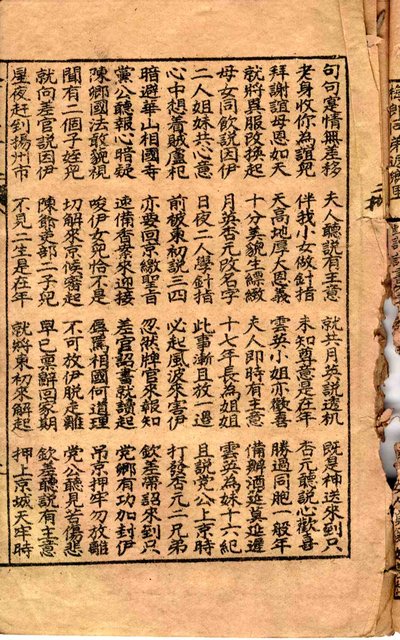 句句實情無差移 夫人聽說有主意 就共月英說透机 既是神送來到只
老身收你為誼兒 伴我小女做針指 未知尊意是在年 杏元聽說心歡喜
拜謝誼母恩如天 天高地厚大恩義 雲英小姐亦歡喜 勝過同胞一般年
就將異服改換起 十分美貌生縹緻 夫人即時有主意 備辦酒莚莫延遲
母女同飲說因伊 月英杏元改名字 十七年長為姐姐 雲英為妹十六紀
二人姐妹共心意 日夜二人學針指 此事漸且放一邊 且說党公上京時
心中想着賊盧杞 前被東初說三四 必起風波來害伊 打發杏元二兄弟
暗避華山相國寺 亦要回京繳聖旨 忽然牌官來報知 欽差帶詔來到只
党公聽報心暗疑 速備香案來迎接 差官詔書就讀起 党鄉有功加封伊
陳鄉國法敢藐視 唆伊女兒恰不是 辱罵相國何道理 吊京押牢勿放離
聞有二個子姪兒 切解來京候審起 不可放伊脫走離 党公聽見苦傷悲
就向差官說因伊 陳爺吏部二子兒 早已稟辭回家期 欽差聽說有主意
星夜赶到揚州市 不見二生是在年 就將東初來解起 押上京城天牢時